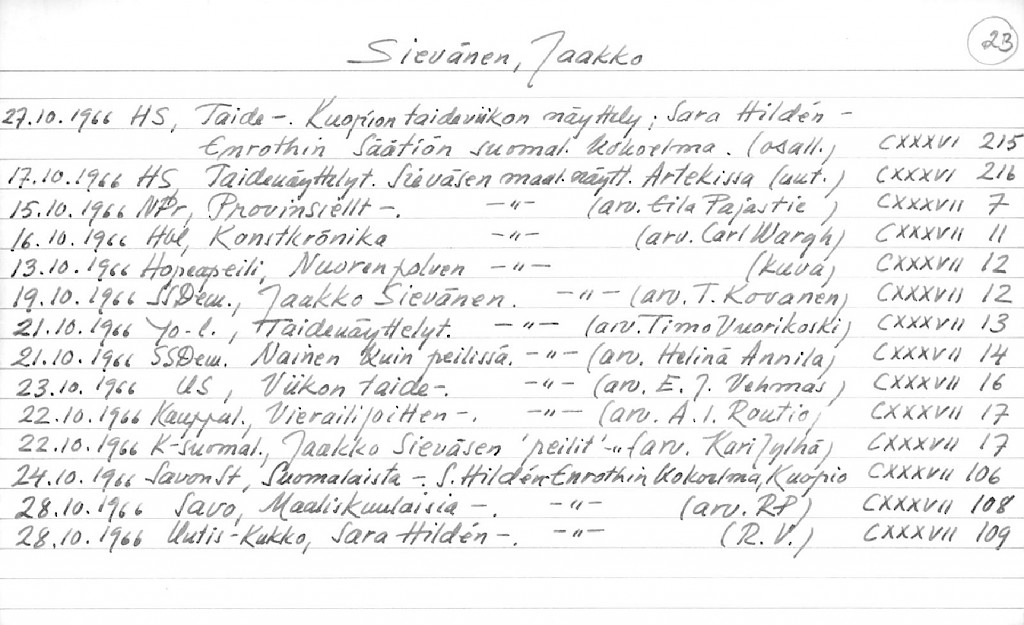 23
Sievänen, Jaakko
27.10.1966 HS, Taide -. Kuopion taideviikon näyttely; Sara Hildén -
Enrothin Säätiön suomal. kokoelma. (osall.) CXXXVI 215
17.10.1966 HS, Taidenäyttelyt. Sieväsen maal.näytt. Artekissa (uut.) CXXXVI 216
15.10.1966 NPr, Provinsiellt -. -"- (arv. Eila Pajastie) CXXXVII 7
16.10.1966 Hbl, Konstkrönika -"- (arv. Carl Wargh) CXXXVII 11
13.10.1966 Hopeapeili, Nuoren polven -"- (kuva) CXXXVII 12
19.10.1966 SSDem., Jaakko Sievänen. -"- (arv. T. Kovanen) CXXXVII 12
21.10.1966 Yo-l., Taidenäyttelyt. -"- (arv. Timo Vuorikoski) CXXXVII 13
21.10.1966 SSDem. Nainen kuin peilissä. -"- (arv. Helinä Annila) CXXXVII 14
23.10.1966 US, Viikon taide -. -"- (arv. E. J. Vehmas) CXXXVII 16
22.10.1966 Kauppal., Vierailijoitten -. -"- (arv. A. I. Routio) CXXXVII 17
22.10.1966 K-Suomal., Jaakko Sieväsen 'peilit' -"- (arv. Kari Jylhä) CXXXVII 17
24.10.1966 SavonSt, Suomalaista -. S. Hildén-Enrothin kokoelma, Kuopio CXXXVII 106
28.10.1966 Savo, Maaliskuulaisia -. -"- (arv. RP) CXXXVII 108
28.10.1966 Uutis-Kukko, Sara Hildén -. -"- (R. V.) CXXXVII 109